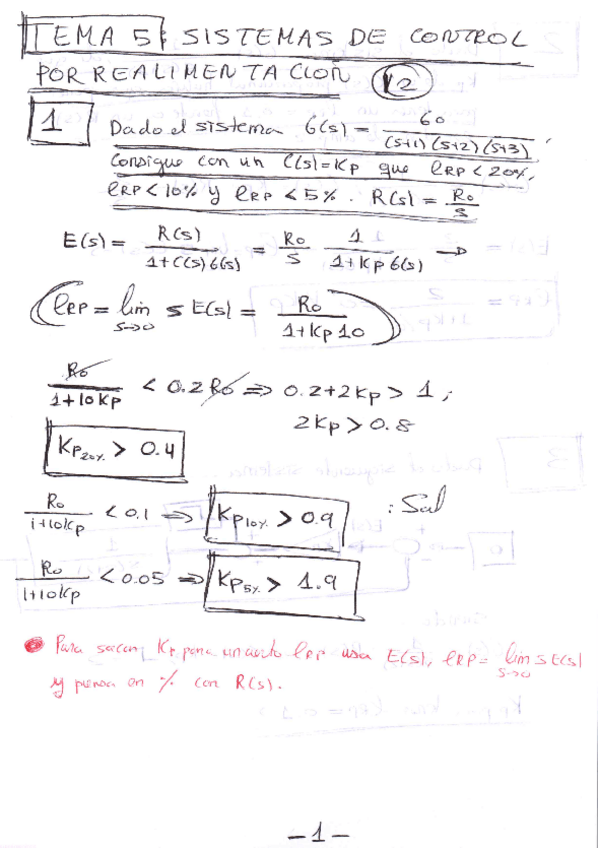 TEMA 5: SISTEMAS DE CONTROL
POR REALIMENTACION K2
1 Dado el sistema G(s) = 60 / (s+1)(s+2)(s+3).
Consigue con un C(s)=Kp que eRP < 20%,
eRP < 10% y eRP < 5%. R(s) = Ro/s
E(s) = R(s) / 1+C(s)G(s) = Ro/s 1 / 1+Kp G(s) →
eRP = lim s→0 s E(s) = Ro / 1+Kp10
Ro / 1+10Kp < 0.2 Ro ⇒ 0.2+2Kp > 1 ;
2Kp > 0.8
Kp20% > 0.4
Ro / 1+10Kp < 0.1 ⇒ Kp10% > 0.9 : Sol
Ro / 1+10Kp < 0.05 ⇒ Kp5% > 1.9
Para sacar Kp para un cierto eRP usa E(s), eRP = lim s→0 s E(s)
y piensa en % con R(s).
-1-